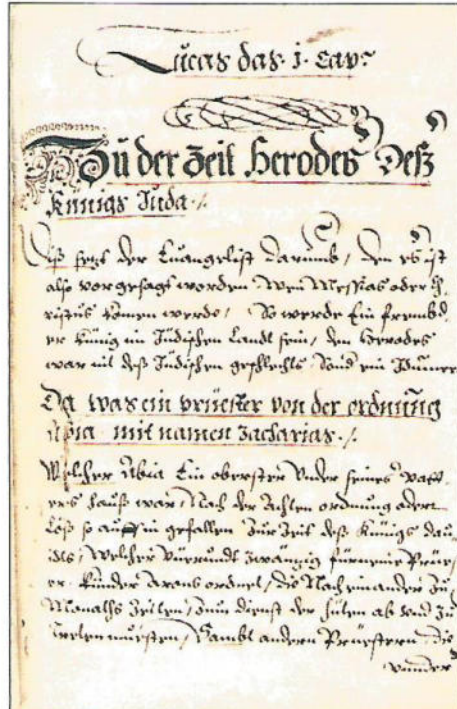 Lucas das .1. Cap:
Zu der Zeit Herodes Deß
Künigs Juda ./.
Diß sagt der Euangelist darumb / den es ist
also vorgesagt worden wen Messias oder Ch
ristus komen werde / So werde Ein frembd
er künig im Jüdischen Landt sein / den Herodes
war nit deß Jüdischen geschlechts Sond ein Idumeer
Da was ein priester von der ordnung
Abia mit namen Zacharias ./.
Welcher Abia Ein oberster Under seines vatt
ers hauß war / Nach der Achten ordnung oder
Loß so auf in gefallen Zur Zeit deß Künigs dau
ids / Welcher Vierundt Zwainzig fürneme
er kinder Arons ordnet / die Nach einander Zu
Monaths Zeiten / Zum dienst der hüten ab vnd Zu
tretten muesten / Sambt andern Priestern die
vnnder